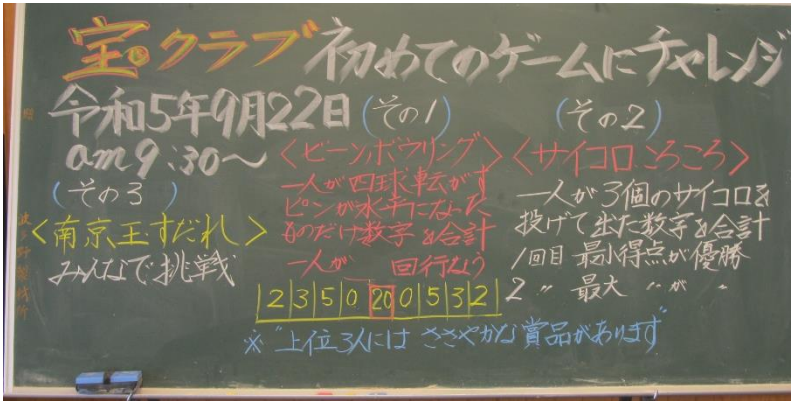 宝クラブ 初めてのゲームにチャレンジ
令和5年9月22日
am9:30〜
(その1)
<ビーンボウリング>
一人が四球転がす
ピンが水平になった
ものだけ数字を合計
一人が 回行なう
2 3 5 0 20 0 5 3 2
(その2)
<サイコロころころ>
一人が3個のサイコロを
投げて出た数字を合計
1回目 最小得点が優勝
2 〃 最大 〃 が 〃
(その3)
<南京玉すだれ>
みんなで挑戦
※"上位3人には ささやかな賞品があります"